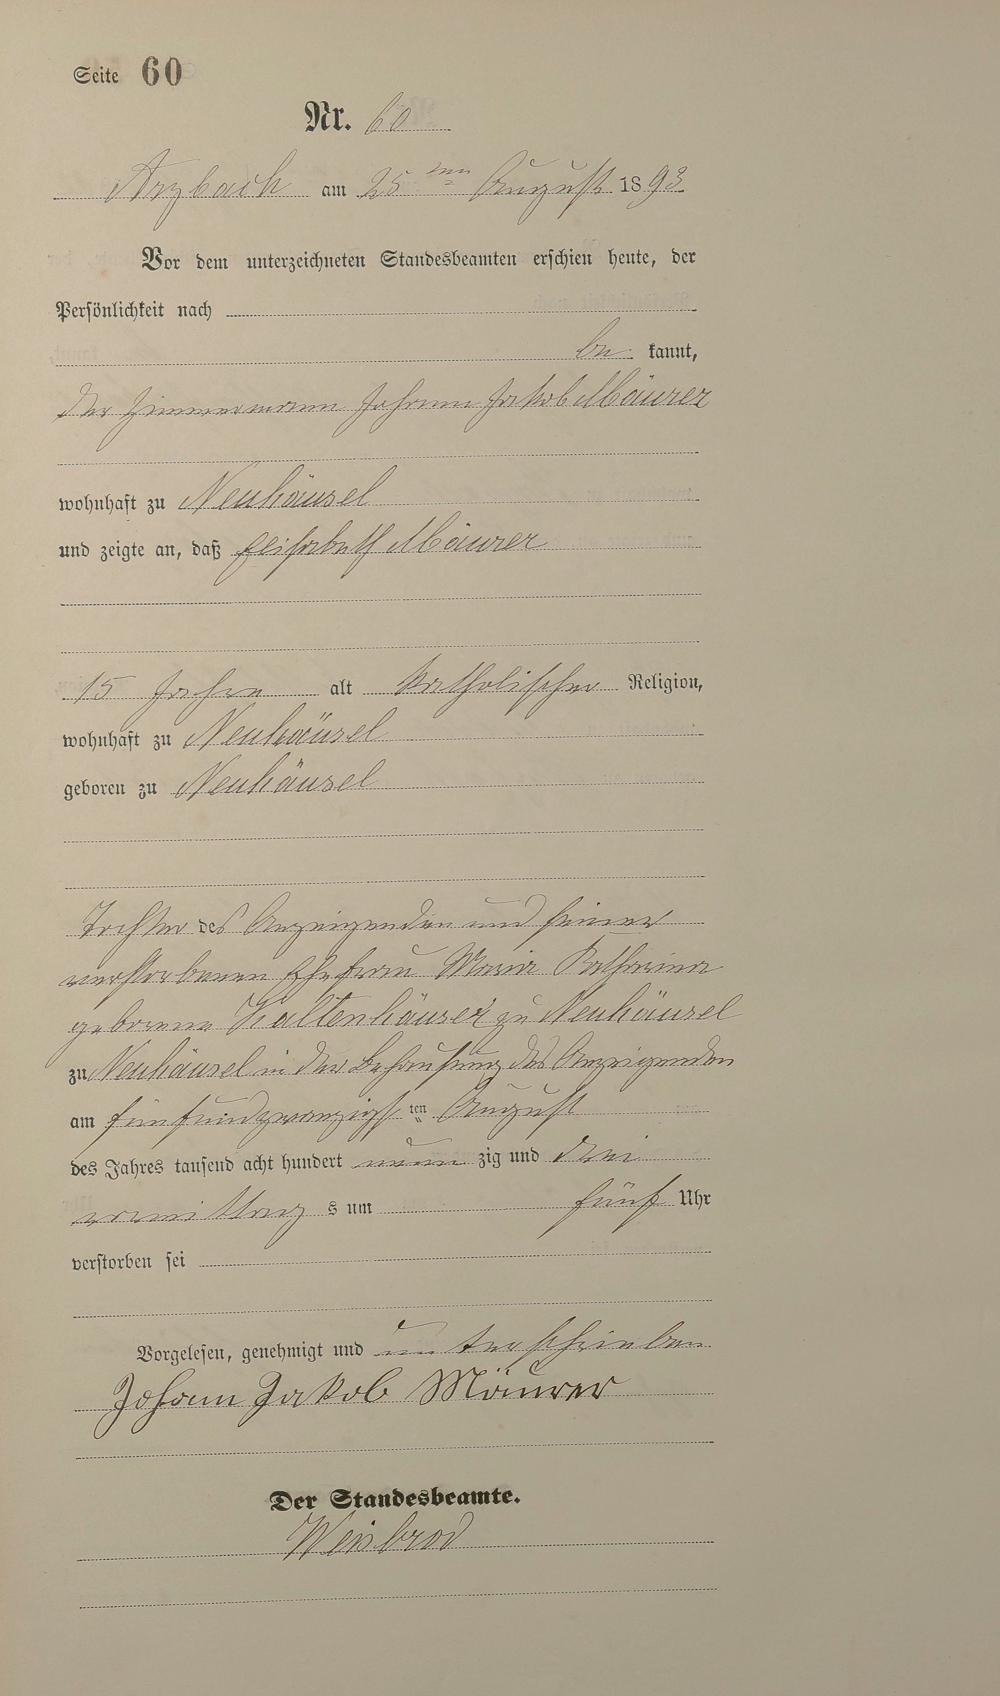 Seite 60
Nr. 60
Arzbach am 25ten August 1893
Vor dem unterzeichneten Standesbeamten erschien heute, der
Persönlichkeit nach
be kannt,
der Zimmermann Johann Jakob Mäurer
wohnhaft zu Neuhäusel
und zeigte an, daß Elisabeth Mäurer
15 Jahre alt katholischer Religion,
wohnhaft zu Neuhäusel
geboren zu Neuhäusel
Tochter des Anzeigenden und seiner
verstorbenen Ehefrau Maria Katharina
geborene Kaltenhäuser zu Neuhäusel
zu Neuhäusel in der Behausung des Anzeigenden
am fünfundzwanzigsten August
des Jahres tausend acht hundert neun zig und drei
vormittag s um fünf Uhr
verstorben sei
Vorgelesen, genehmigt und unterschrieben
Johann Jakob Mäurer
Der Standesbeamte.
Weisbrod